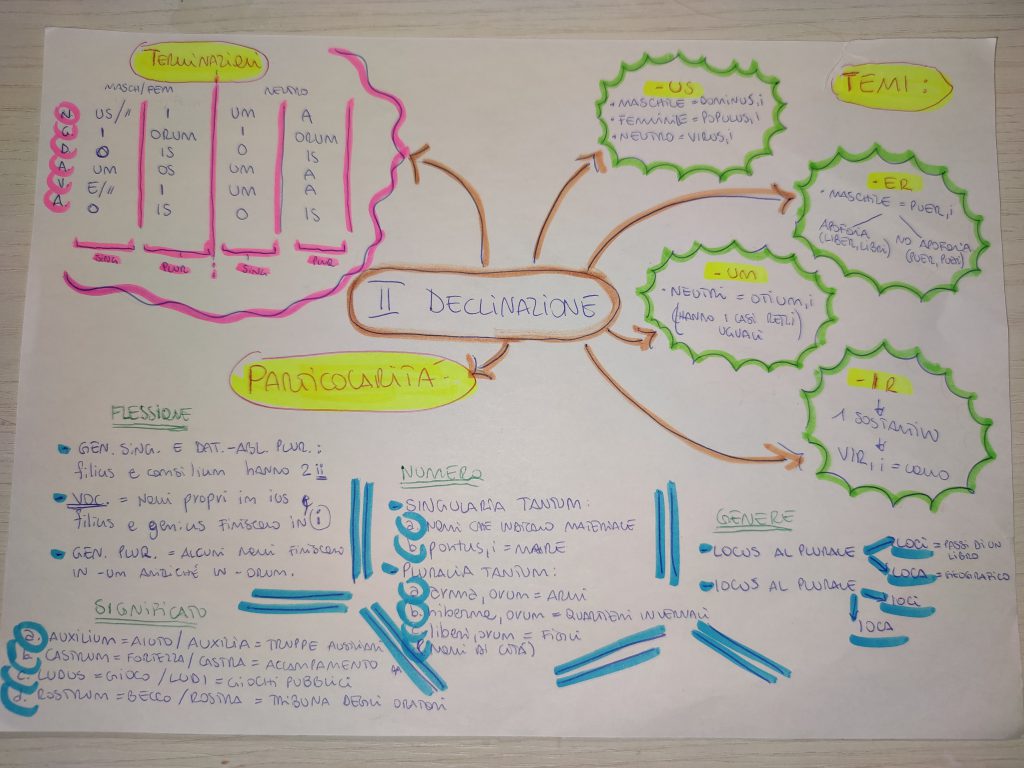 TERMINAZIONI
MASCH/FEM NEUTRO
N US/" I UM A
G I ORUM I ORUM
D O IS O IS
A UM OS UM A
V E/" I UM A
A O IS O IS
SING PLUR SING PLUR
II DECLINAZIONE
TEMI:
-US
• MASCHILE = DOMINUS,i
• FEMMINILE = POPULUS,i
• NEUTRO = VIRUS,i
-ER
• MASCHILE = PUER,i
APOFONIA NO APOFONIA
(LIBER, LIBRI) (PUER, PUERI)
-UM
• NEUTRI = OTIUM,i
(HANNO I CASI RETTI
UGUALI
-IR
1 SOSTANTIVO
VIR,i = UOMO
PARTICOLARITÀ
FLESSIONE
- GEN. SING. E DAT.-ABL PLUR.:
filius e consilium hanno 2 ii
- VOC. = Nomi propri in ius e
filius e genius finiscono in i
- GEN. PLUR. = ALCUNI NOMI FINISCONO
IN -UM ANZICHÉ IN -ORUM.
SIGNIFICATO
a. AUXILIUM = AIUTO/AUXILIA = TRUPPE AUSILIARI
b. CASTRUM = FORTEZZA/CASTRA = ACCAMPAMENTO
c. LUDUS = GIOCO/LUDI = GIOCHI PUBBLICI
d. ROSTRUM = BECCO/ROSTRA = TRIBUNA DEGLI ORATORI
NUMERO
- SINGULARIA TANTUM:
a. NOMI CHE INDICANO MATERIALE
b. pontus,i = MARE
- PLURALIA TANTUM:
a. arma, orum = ARMI
b. hiberna, orum = QUARTIERI INVERNALI
c. liberi, orum = FIGLI
(NOMI DI CITTÀ)
GENERE
- LOCUS AL PLURALE LOCI = PASSI DI UN
LIBRO
LOCA = GEOGRAFICO
- IOCUS AL PLURALE IOCI
IOCA